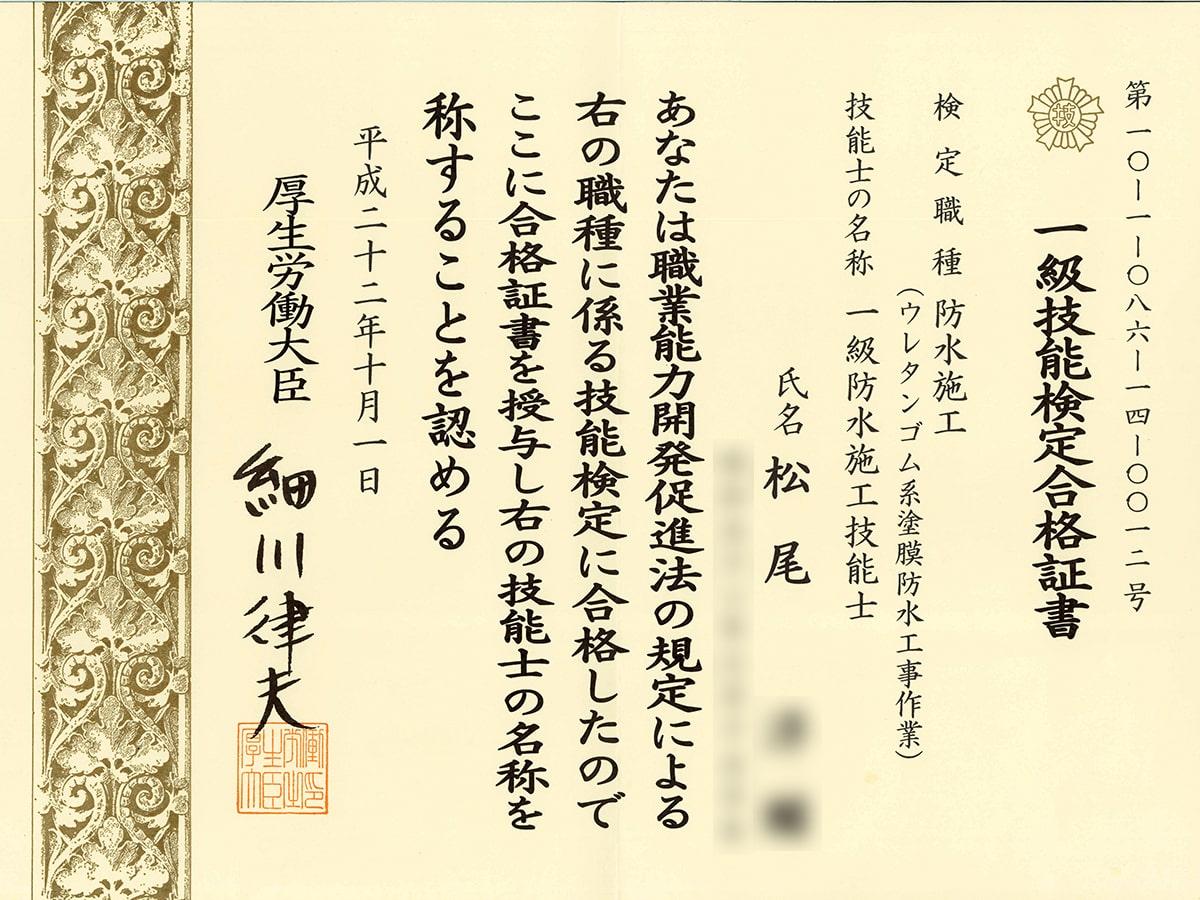 第一〇－一－〇八六－一四－〇〇一二号
技
一級技能検定合格証書
検定職種 防水施工
（ウレタンゴム系塗膜防水工事作業）
技能士の名称 一級防水施工技能士
氏名 松尾
あなたは職業能力開発促進法の規定による
右の職種に係る技能検定に合格したので
ここに合格証書を授与し右の技能士の名称を
称することを認める
平成二十二年十月一日
厚生労働大臣 細川律夫